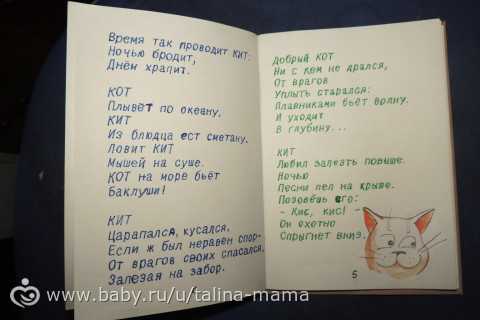 Время так проводит КИТ:
Ночью бродит,
Днём храпит.
КОТ
Плывёт по океану,
КИТ
Из блюдца ест сметану.
Ловит КИТ
Мышей на суше.
КОТ на море бьёт
Баклуши!
КИТ
Царапался, кусался,
Если ж был неравен спор-
От врагов своих спасался,
Залезая на забор.
Добрый КОТ
Ни с кем не дрался,
От врагов
Уплыть старался:
Плавниками бьёт волну.
И уходит
В глубину...
КИТ
Любил залезть повыше.
Ночью
Песни пел на крыше.
Позовёшь его:
- Кис, кис! -
Он охотно
Спрыгнет вниз.
5
www.baby.ru/u/talina-mama